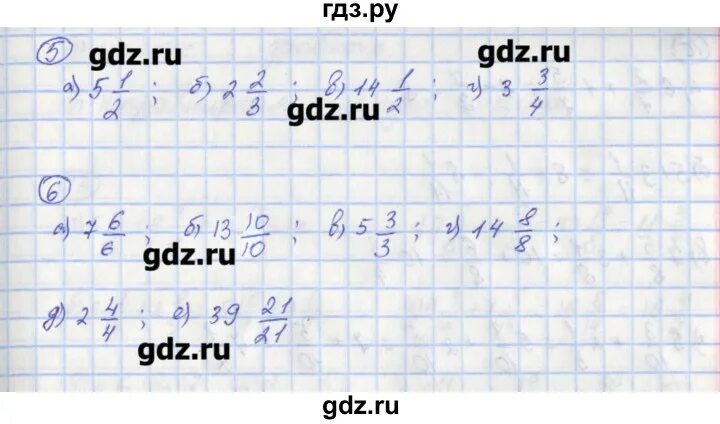 гдз.ру
5
gdz.ru gdz.ru
а) 5 1/2 ; б) 2 2/3 ; в) 14 1/2 ; г) 3 3/4
gdz.ru
6
а) 7 6/6 ; б) 13 10/10 ; в) 5 3/3 ; г) 14 8/8 ;
gdz.ru
д) 2 4/4 ; е) 39 21/21 .
gdz.ru
gdz.ru